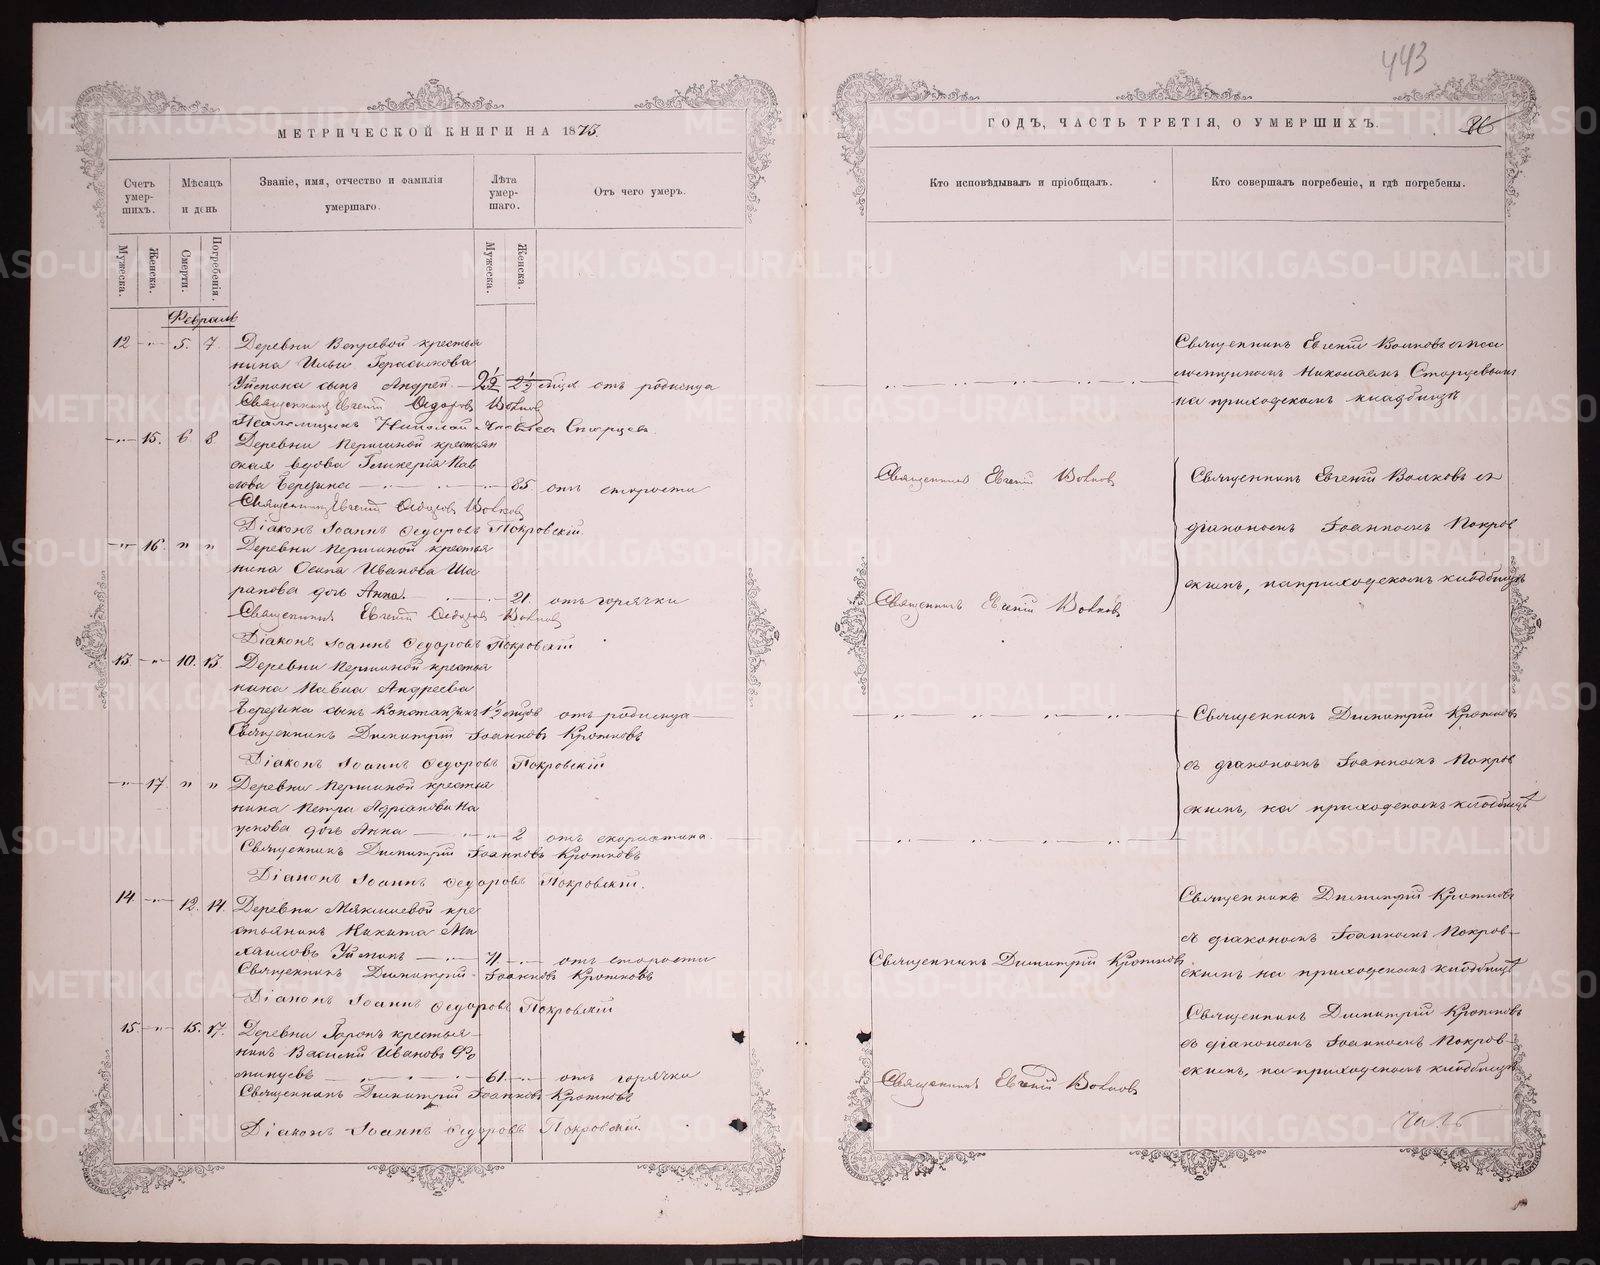 443
МЕТРИЧЕСКОЙ КНИГИ НА 1875.
ГОДЪ, ЧАСТЬ ТРЕТІЯ, О УМЕРШИХЪ.
86
Счетъ умер-шихъ.
Мѣсяцъ и день
Званіе, имя, отчество и фамилія умершаго.
Лѣта умер-шаго.
Отъ чего умеръ.
Кто исповѣдывалъ и пріобщалъ.
Кто совершалъ погребеніе, и гдѣ погребены.
Мужеска.
Женска.
Смерти.
Погребенія.
Мужеска.
Женска.
Февраля
12 5. 7. Деревни крестья
нина Ильи Герасимова
сынъ Андрей 2½ отъ родимца
Священникъ Евгеній Ѳедоровъ Волковъ
Псаломщикъ Николай Старцевъ.
Священникъ Евгеній Волковъ съ пса
ломщикомъ Николаемъ Старцевымъ
на приходскомъ кладбищѣ
15. 6. 8 Деревни Першиной крестьян
ская вдова Гликерія Пав
лова Березина 85 отъ старости
Священникъ Евгеній Ѳедоровъ Волковъ
Діаконъ Іоаннъ Ѳедоровъ Покровскій.
Священникъ Евгеній Волковъ
Священникъ Евгеній Волковъ съ
діакономъ Іоанномъ Покров
скимъ, на приходскомъ кладбищѣ
16. " " Деревни Першиной крестья
нина Осипа Иванова Ша
рапова дочь Анна. 21. отъ горячки
Священникъ Евгеній Ѳедоровъ Волковъ
Діаконъ Іоаннъ Ѳедоровъ Покровскій
Священникъ Евгеній Волковъ
13. 10. 13. Деревни Першиной крестья
нина Павла Андреева
Березина сынъ Константинъ 1½ отъ родимца
Священникъ Димитрій Іоанновъ Кротковъ
Діаконъ Іоаннъ Ѳедоровъ Покровскій
Священникъ Димитрій Кротковъ
съ діакономъ Іоанномъ Покров
скимъ, на приходскомъ кладбищѣ
17. " " Деревни Першиной крестья
нина Петра Адріанова На
умова дочь Анна 2 отъ скарлатина.
Священникъ Димитрій Іоанновъ Кротковъ
Діаконъ Іоаннъ Ѳедоровъ Покровскій.
14. 12. 14. Деревни Мякишевой кре
стьянинъ Никита Ми
хаиловъ 71. отъ старости
Священникъ Димитрій Іоанновъ Кротковъ
Діаконъ Іоаннъ Ѳедоровъ Покровскій
Священникъ Димитрій Кротковъ
Священникъ Димитрій Кротковъ
съ діакономъ Іоанномъ Покров-
скимъ на приходскомъ кладбищѣ
15. 15. 17. Деревни крестья-
нинъ Василій Ивановъ
61. отъ горячки
Священникъ Димитрій Іоанновъ Кротковъ
Діаконъ Іоаннъ Ѳедоровъ Покровскій.
Священникъ Евгеній Волковъ
Священникъ Димитрій Кротковъ
съ діакономъ Іоанномъ Покров-
скимъ, на приходскомъ кладбищѣ
METRIKI.GASO-URAL.RU